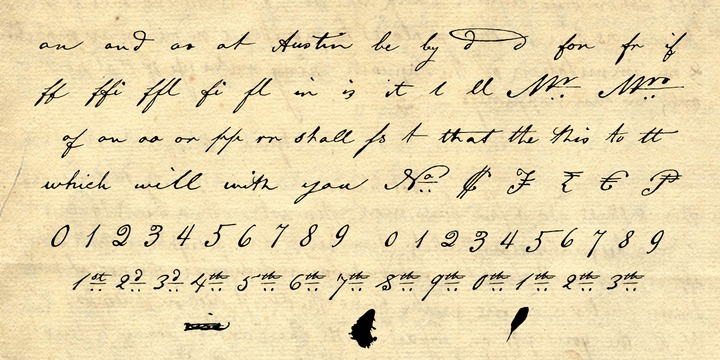 an and as at Austin be by d d for fr if
ff ffi ffl fi fl in is it l ll Mr Mrs
of on oo or pp rr shall ss t that the this to tt
which will with you No ₡ F £ € P
0 1 2 3 4 5 6 7 8 9 0 1 2 3 4 5 6 7 8 9
1st 2d 3d 4th 5th 6th 7th 8th 9th 0th 1th 2th 3th